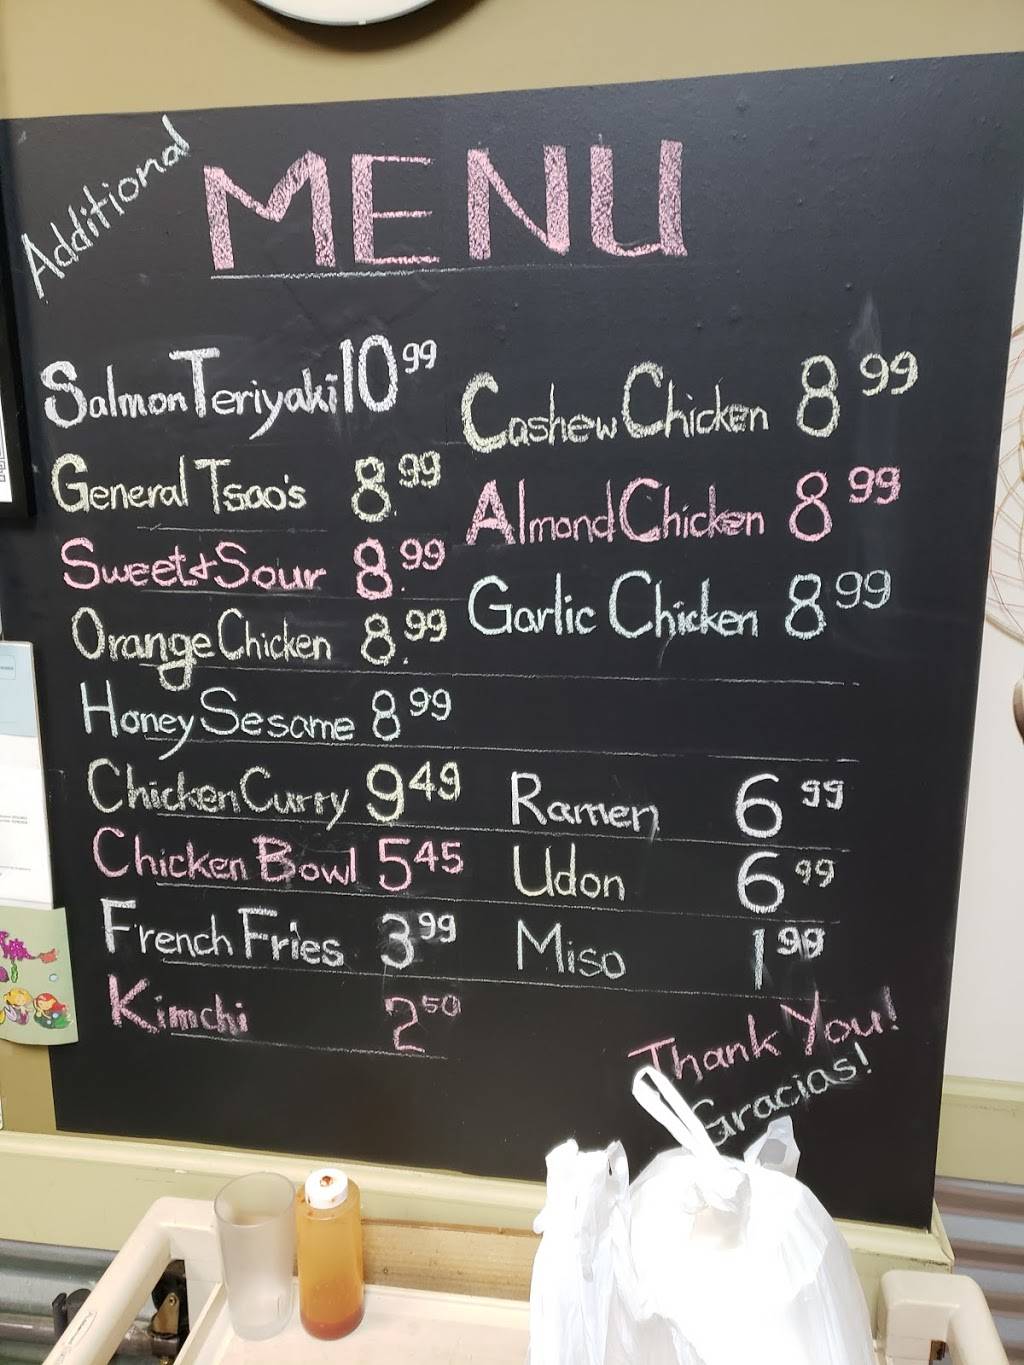 Additional
MENU
Salmon Teriyaki 10 99
General Tsao's 8.99
Sweet & Sour 8.99
Orange Chicken 8.99
Honey Sesame 8 99
Chicken Curry 9 49
Chicken Bowl 5 45
French Fries 3 99
Kimchi 2 50
Cashew Chicken 8 99
Almond Chicken 8 99
Garlic Chicken 8 99
Ramen 6 99
Udon 6 99
Miso 1 99
Thank You!
Gracias!